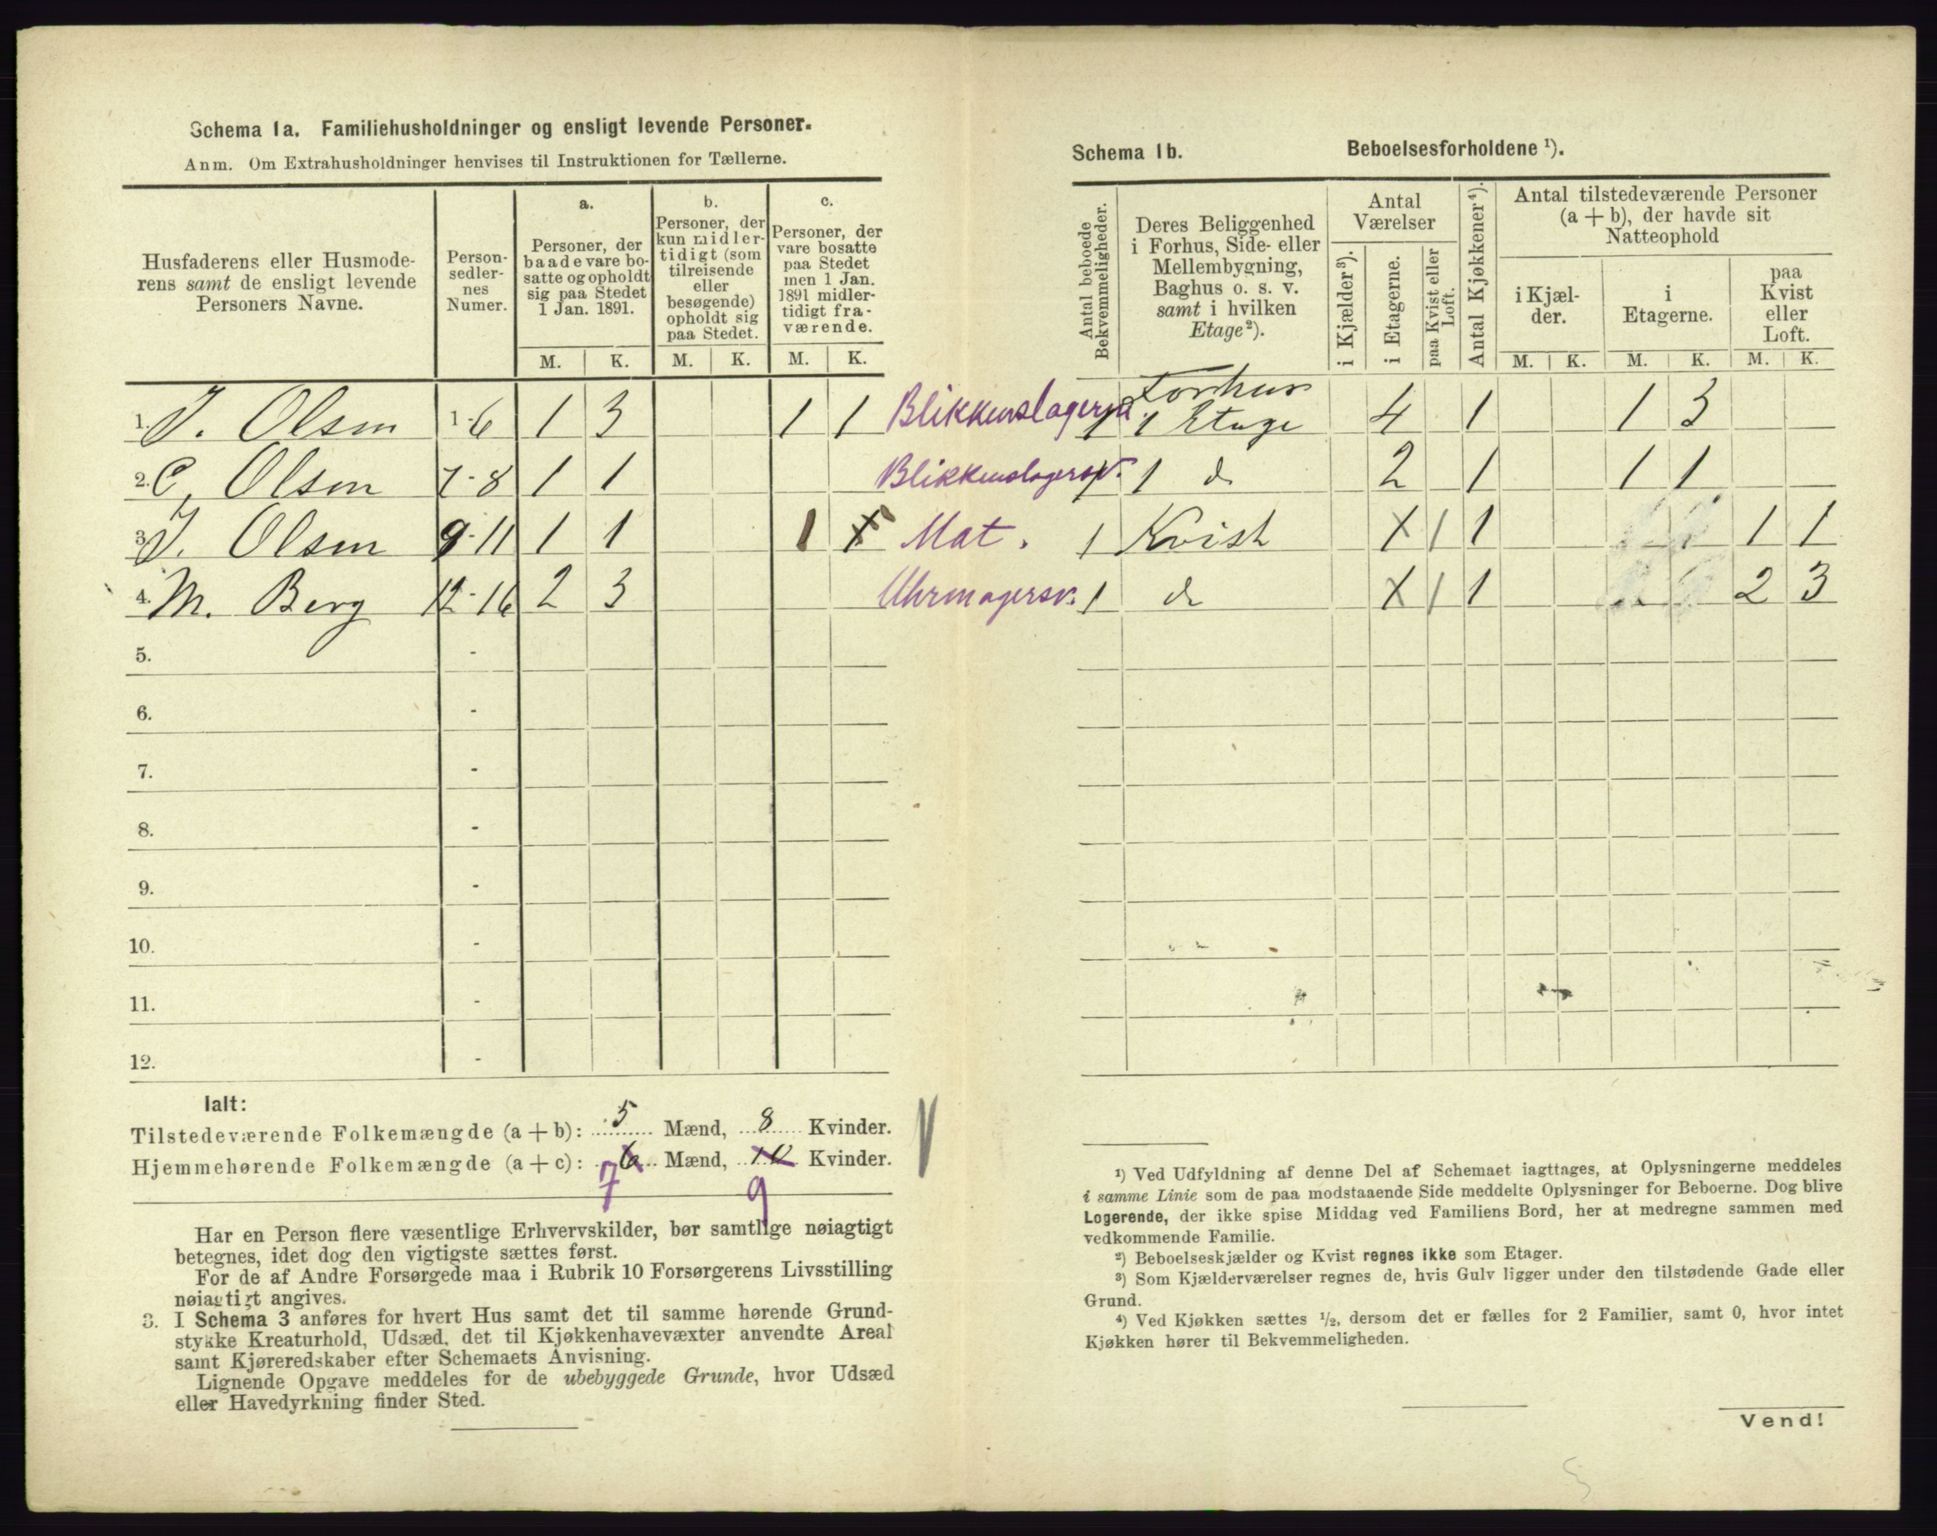 Schema 1a. Familiehusholdninger og ensligt levende Personer.
Anm. Om Extrahusholdninger henvises til Instruktionen for Tællerne.
Husfaderens eller Husmoderens samt de ensligt levende Personers Navne.
Personsedlernes Numer.
a.
Personer, der baade vare bosatte og opholdt sig paa Stedet 1 Jan. 1891.
b.
Personer, der kun midlertidigt (som tilreisende eller besøgende) opholdt sig paa Stedet.
c.
Personer, der vare bosatte paa Stedet men 1 Jan. 1891 midlertidigt fraværende.
M. K. M. K. M. K.
1. J. Olsen 1-6 1 3 1 1
2. C. Olsen 7-8 1 1
3. J. Olsen 9-11 1 1 1 X
4. M. Berg 12-16 2 3
5. -
6. -
7. -
8. -
9. -
10. -
11. -
12. -
Ialt:
Tilstedeværende Folkemængde (a+b): 5 Mænd, 8 Kvinder.
Hjemmehørende Folkemængde (a+c): 6 Mænd, 10 Kvinder.
7 9
Har en Person flere væsentlige Erhvervskilder, bør samtlige nøiagtigt
betegnes, idet dog den vigtigste sættes først.
For de af Andre Forsørgede maa i Rubrik 10 Forsørgerens Livsstilling
nøiagtigt angives.
3. I Schema 3 anføres for hvert Hus samt det til samme hørende Grund-
stykke Kreaturhold, Udsæd, det til Kjøkkenhavevæxter anvendte Areal
samt Kjøreredskaber efter Schemaets Anvisning.
Lignende Opgave meddeles for de ubebyggede Grunde, hvor Udsæd
eller Havedyrkning finder Sted.
Schema 1b. Beboelsesforholdene ¹).
Antal beboede Bekvemmeligheder.
Deres Beliggenhed i Forhus, Side- eller Mellembygning, Baghus o. s. v. samt i hvilken Etage²).
Antal Værelser
i Kjælder³).
i Etagerne.
paa Kvist eller Loft.
Antal Kjøkkener⁴).
Antal tilstedeværende Personer (a+b), der havde sit Natteophold
i Kjælder.
i Etagerne.
paa Kvist eller Loft.
M. K. M. K. M. K.
Blikkenslagersv. 1 Forhus 1 Etage 4 1 1 3
Blikkenslagersv. 1 1 do 2 1 1 1
Mat. 1 Kvist X 1 1 1 1
Uhrmagersv. 1 do X 1 1 2 3
¹) Ved Udfyldning af denne Del af Schemaet iagttages, at Oplysningerne meddeles
i samme Linie som de paa modstaaende Side meddelte Oplysninger for Beboerne. Dog blive
Logerende, der ikke spise Middag ved Familiens Bord, her at medregne sammen med
vedkommende Familie.
²) Beboelseskjælder og Kvist regnes ikke som Etager.
³) Som Kjælderværelser regnes de, hvis Gulv ligger under den tilstødende Gade eller
Grund.
⁴) Ved Kjøkken sættes ½, dersom det er fælles for 2 Familier, samt 0, hvor intet
Kjøkken hører til Bekvemmeligheden.
Vend!